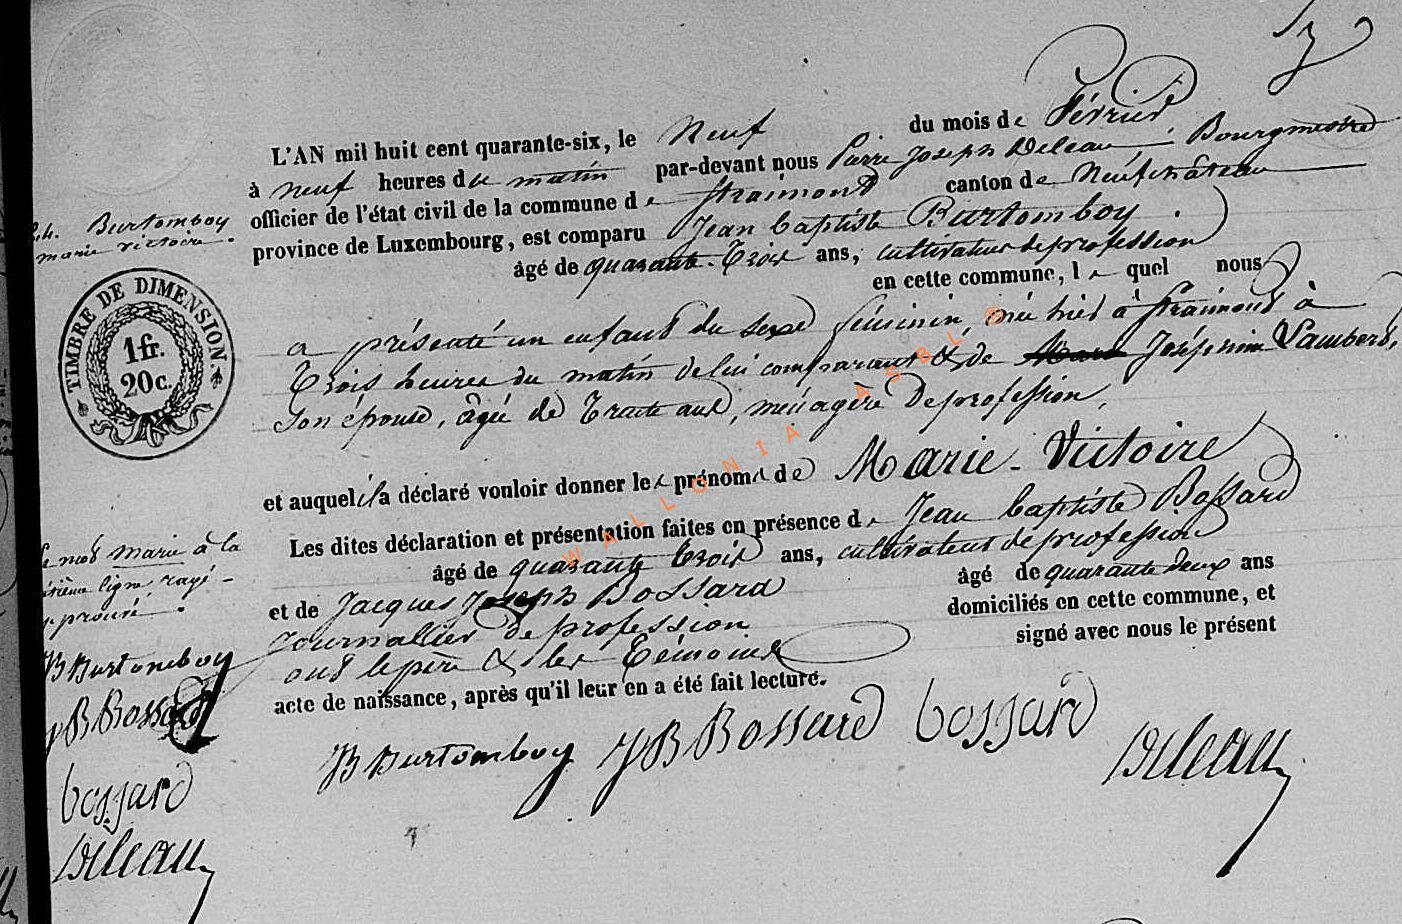 3
L'AN mil huit cent quarante-six, le Neuf du mois de Février
à neuf heures du matin par-devant nous Pierre Joseph Deleau, Bourgmestre
officier de l'état civil de la commune de Straimont canton de Neufchâteau
province de Luxembourg, est comparu Jean baptiste Burtomboy.
âgé de quarante-Trois ans, cultivateur de profession
en cette commune, le quel nous
a présenté un enfant du sexe féminin, née hier à Straimont à
Trois heures du matin de lui comparant & de Marie Joséphine Lambert,
Son épouse, âgée de Trente ans, ménagère de profession,
et auquel il a déclaré vouloir donner les prénoms de Marie-Victoire
Les dites déclaration et présentation faites en présence de Jean baptiste Bossard
âgé de quarante trois ans, cultivateur de profession
et de Jacques Joseph Bossard âgé de quarante deux ans
Journallier de profession domiciliés en cette commune, et
ont le père & les Témoins signé avec nous le présent
acte de naissance, après qu'il leur en a été fait lecture.
JB Burtomboy JB Bossard bossard Deleau
Burtomboy
marie victoire.
TIMBRE DE DIMENSION
1 fr.
20 c.
mot marie à la
ligne rayé
JB Burtomboy
JB Bossard
bossard
Deleau
WALLONIA ASBL ©